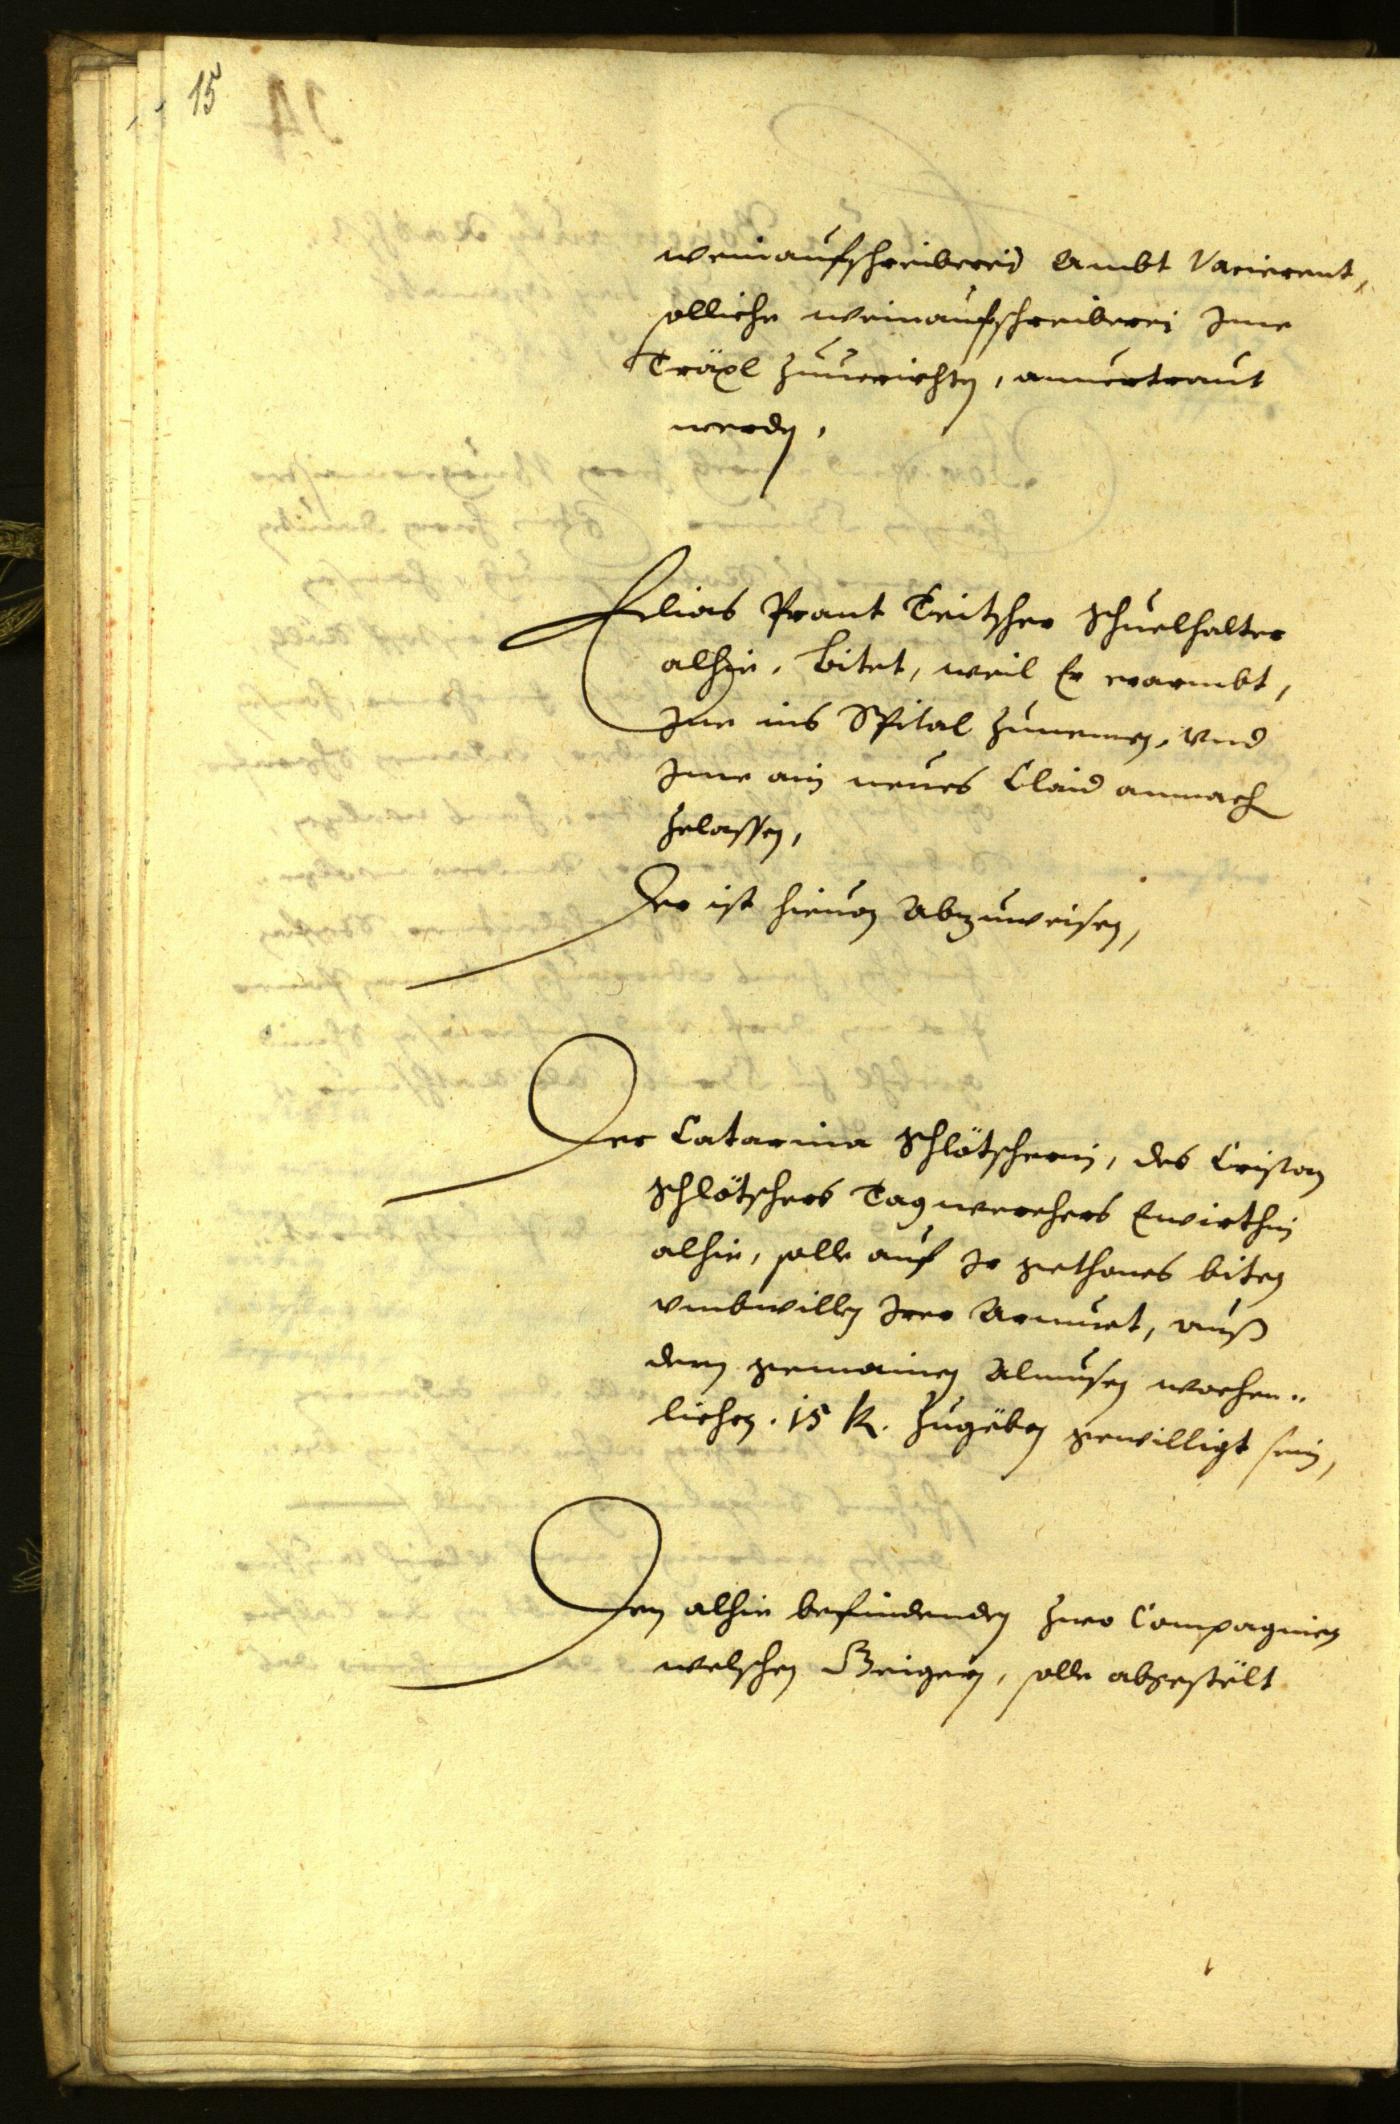 15
weinaufschreiberej Ambt Varierent,
solliche weinaufschreiberei Ime
Träxl zuuerrichten, anuertraut
werden,
Elias Prant Teitscher Schuelhalter
alhie, bitet, weil Er erarmbt,
Ine ins Spital zunemen, vnd
Ime ain neues Claid anmach
zelassen,
Der ist hieuon Abzuweisen,
Der Catarina Schlötscherin, des Cristan
Schlötschers Tagwerchers Ewirthin
alhie, solle auf Ir gethones biten
vmbwillen Irer Armuet, auß
dem gemainen Almusen wochen„
lichen . 15 k. zugëben gewilligt sein,
Den alhie befindenden zwo Compagnien
welschen Geigern, solle abgestëlt